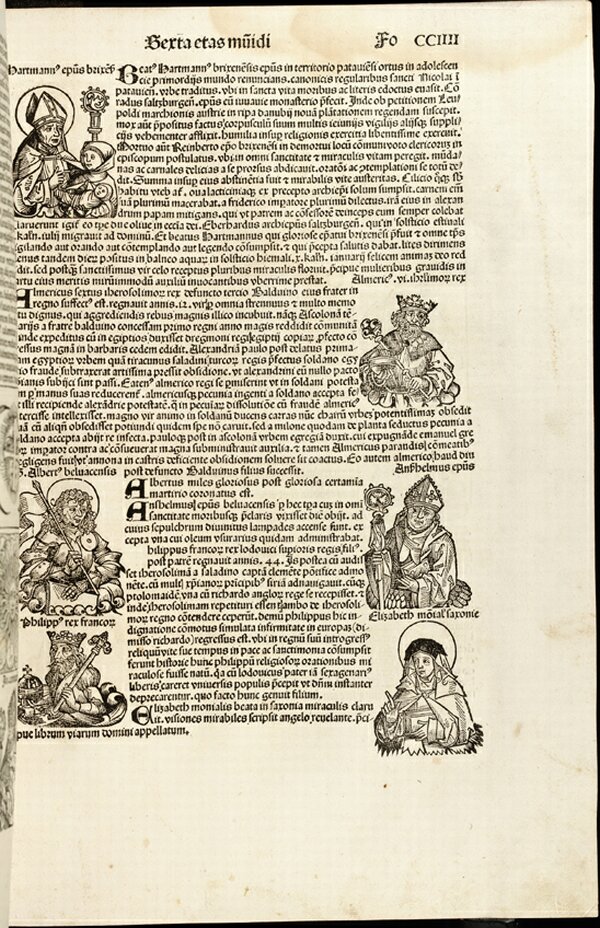 Sexta etas mūdi
Fo CCIIII
Hartmannꝰ epūs brixēn̄
Beatꝰ Hartmannꝰ brixenēsis epūs in territorio patauiēsi ortus in adolescen
cie primordijs mundo renuncians. canonicis regularibus sancti Nicolai ī
patauien̄. vrbe traditus. vbi in sancta vita moribus ac literis edoctus euasit. Cō
radus saltzburgen̄. epūs cū iuuauie monasterio p̄fecit. Inde ob petitionem Leu
poldi marchionis austrie in ripa danubij nouā plātationem regendam suscepit.
mox aut p̄positus factus corpusculū suum multis ieiunijs vigilijs alijsqꝫ suppli
cijs vehementer afflixit. humilia insup religionis exercitia libentissime exercuit.
Mortuo aūt Reinberto epō brixenēsi in demortui locū cōmuni voto clericorum in
episcopum postulatus. vbi in omni sanctitate et miraculis vitam peregit. mūda
nas ac carnales delicias a se prorsus abdicauit. oratōi ac ɔtemplationi se totū de
dit. Summa insup eius abstinētia fuit et mirabilis vite austeritas. Cilicio
habitu vteba. oua lacticiniaqꝫ ex precepto archiepi solum sumpsit. carnem eīm
quā plurimū macerabat. a friderico impatore plurimū dilectus.
drum papam mitigans. qui vt patrem ac cōfessorē deinceps eum semper colebat
luxerunt igiť eo tp̄e due oliue in ecc̄ia dei. Eberhardus archiepūs saltzburgen̄. qui in solsticio estiuali
kaln̄. iulij migrauit ad dominū. Et beatus Hartmannus qui gloriose ep̄atui brixinēsi p̄fuit et omne tp̄s
vigilando aut orando aut cōtemplando aut legendo cōsumpsit. et qui p̄cepta salutis dabat. lites dirimens
tandem dieꝫ positus in balneo aquar̄ in solsticio hiemali. x. kaln̄. ianuarij felicem animā deo red
dit. sed postqꝫ sanctissimus vir celo receptus pluribus miraculis floruit. p̄cipue mulieribus grauidis in
partu eius meritis mirūimmodū auxiliū inuocantibus vberrime prestat.
Almericꝰ. vi. ihrlimoꝝ rex
Almericus sextus iherosolimoꝝ rex defuncto tercio Balduino eius frater in
regno suffectꝰ est. regnauit annis.
tu dignus. qui aggrediendis rebus magnis illico incubuit. nāqꝫ Ascolonā te
a fratre balduino concessam primo regni anno magis reddidit cōmunitā
inde expeditus cū in egiptios duxisset dregmoni regi egiptij copiaꝝ p̄fecto cō
gressus magnā in barbaris cedem edidit. Alexandriā paulo post
egyptioꝝ vrbem quā tiracinus saladini
fraude subtraxerat artissima pressit obsidione. vt alexandrini cū nullo pacto
subijci sint passi. Eatenꝰ almerico regi se p̄miserint vt in soldani potesta
manus suas reducerent. almericusqꝫ pecunia ingenti a soldano accepta se
recipiende alexādrie potestatē. ꝙ in pecuniaꝝ dissolutiōe cū fraudē almericꝰ
intellexisset. magno vir animo in soldanū ducens carras nūc chairū vrbes potentissimas obsedit
cū aliqn̄ obsedisset potiundi quidem spe nō caruit. sed a milone quodam de planta seductus pecunia a
soldano accepta abijt re infecta. pauloqꝫ post in ascolonā vrbem egregiā duxit. cui expugnāde emanuel gre
impator contra ac cōsueuerat magna subministrauit auxilia. et tamen Almericus
annona in castris deficiente obsidionem soluere sit coactus. Eo autem almerico haud diu
post defuncto Balduinus filius successit.
S. Albertꝰ beluacensis
Anßhelmus epūs
Albertus miles gloriosus post gloriosa certamīa
martirio coronatus est.
Anßhelmus epūs beluacensis hec tpa eius in omni
sanctitate moribusqꝫ p̄claris vixisset diē obijt. ad
cuius sepulchrum diuinitus lampades accense sunt. ex
cepta vna cui oleum vsurarius quidam administrabat.
Philippus francoꝝ rex lodouici supioris regis filiꝰ.
post patrē regnauit annis. 44. Is postea cū audis
set iherosolimā a saladino captā clemēte pōtifice admo
nēte. cū mulť xp̄ianoꝝ p̄ncipibꝰ siriā adnauigauit. cūqꝫ
ptolomaidē vna cū richardo angloꝝ rege se recepisset. et
inde iherosolimam repetituri essent ambo de iherosoli
moꝝ regno cōtendere ceperūt. demū philippus hic in
dignatione cōmotus simulata infirmitate in europaꝫ di
misso richardo regressus est. vbi in regnū suū introgressꝰ
reliquū vite sue tempus in pace ac sanctimonia cōsumpsit
ferunt historie hunc philippū religiosoꝝ orationibus mi
raculose fuisse natū. qꝛ cū lodouicus pater iā sexagenariꝰ
liberis careret vniuersis populis p̄cepit vt dn̄m instanter
deprecarentur. quo facto hunc genuit filium.
Philippꝰ rex francoꝝ
Elizabeth mōial saxonie
Elizabeth monialis beata in saxonia miraculis claru
it. visiones mirabiles scripsit angelo reuelante. p̄ci
pue librum viarum domini appellatum.